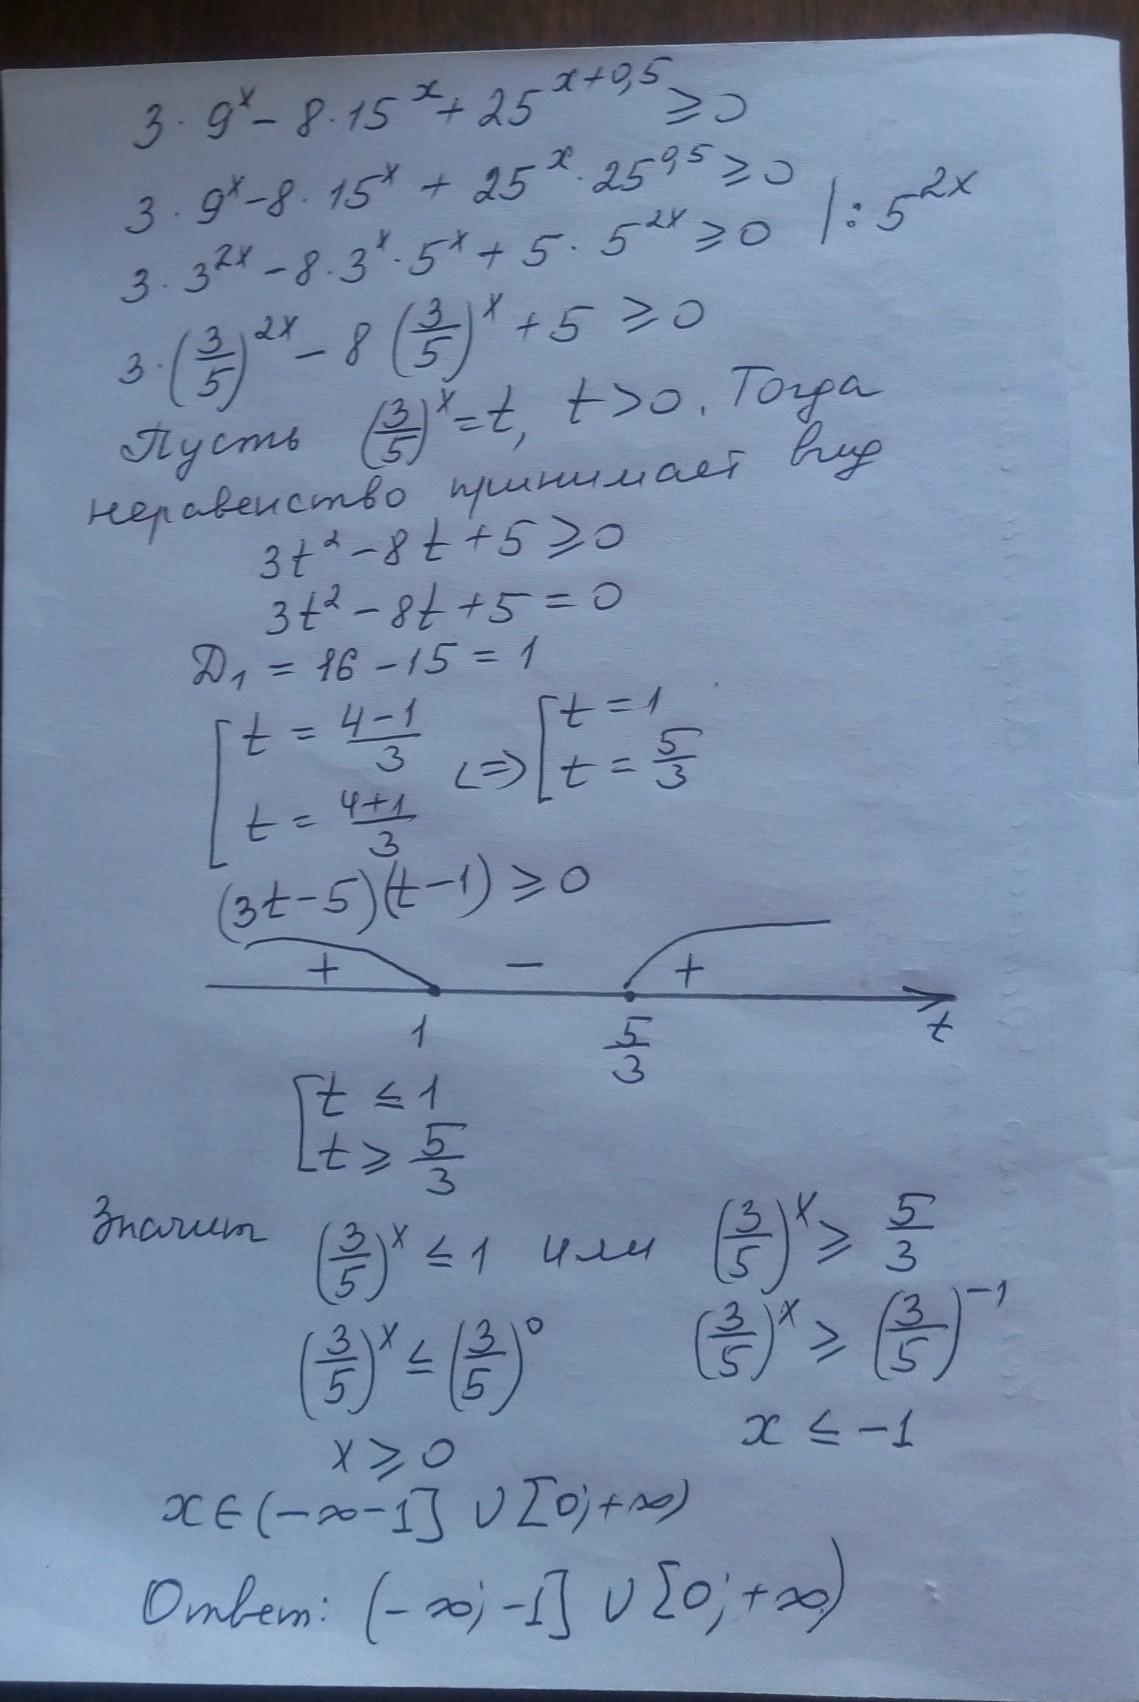 3 · 9^x − 8 · 15^x + 25^{x+0,5} ≥ 0
3 · 9^x − 8 · 15^x + 25^x · 25^{0,5} ≥ 0
3 · 3^{2x} − 8 · 3^x · 5^x + 5 · 5^{2x} ≥ 0 | : 5^{2x}
3 · (3/5)^{2x} − 8 (3/5)^x + 5 ≥ 0
Пусть (3/5)^x = t, t > 0. Тогда
неравенство принимает вид
3t² − 8t + 5 ≥ 0
3t² − 8t + 5 = 0
Д₁ = 16 − 15 = 1
[ t = (4−1)/3 <=> [ t = 1
t = (4+1)/3 t = 5/3
(3t − 5)(t − 1) ≥ 0
+ − +
1 5/3 t
[ t ≤ 1
t ≥ 5/3
Значит (3/5)^x ≤ 1 или (3/5)^x ≥ 5/3
(3/5)^x ≤ (3/5)^0 (3/5)^x ≥ (3/5)^{−1}
x ≥ 0 x ≤ −1
x ∈ (−∞ −1] ∪ [0; +∞)
Ответ: (−∞; −1] ∪ [0; +∞)